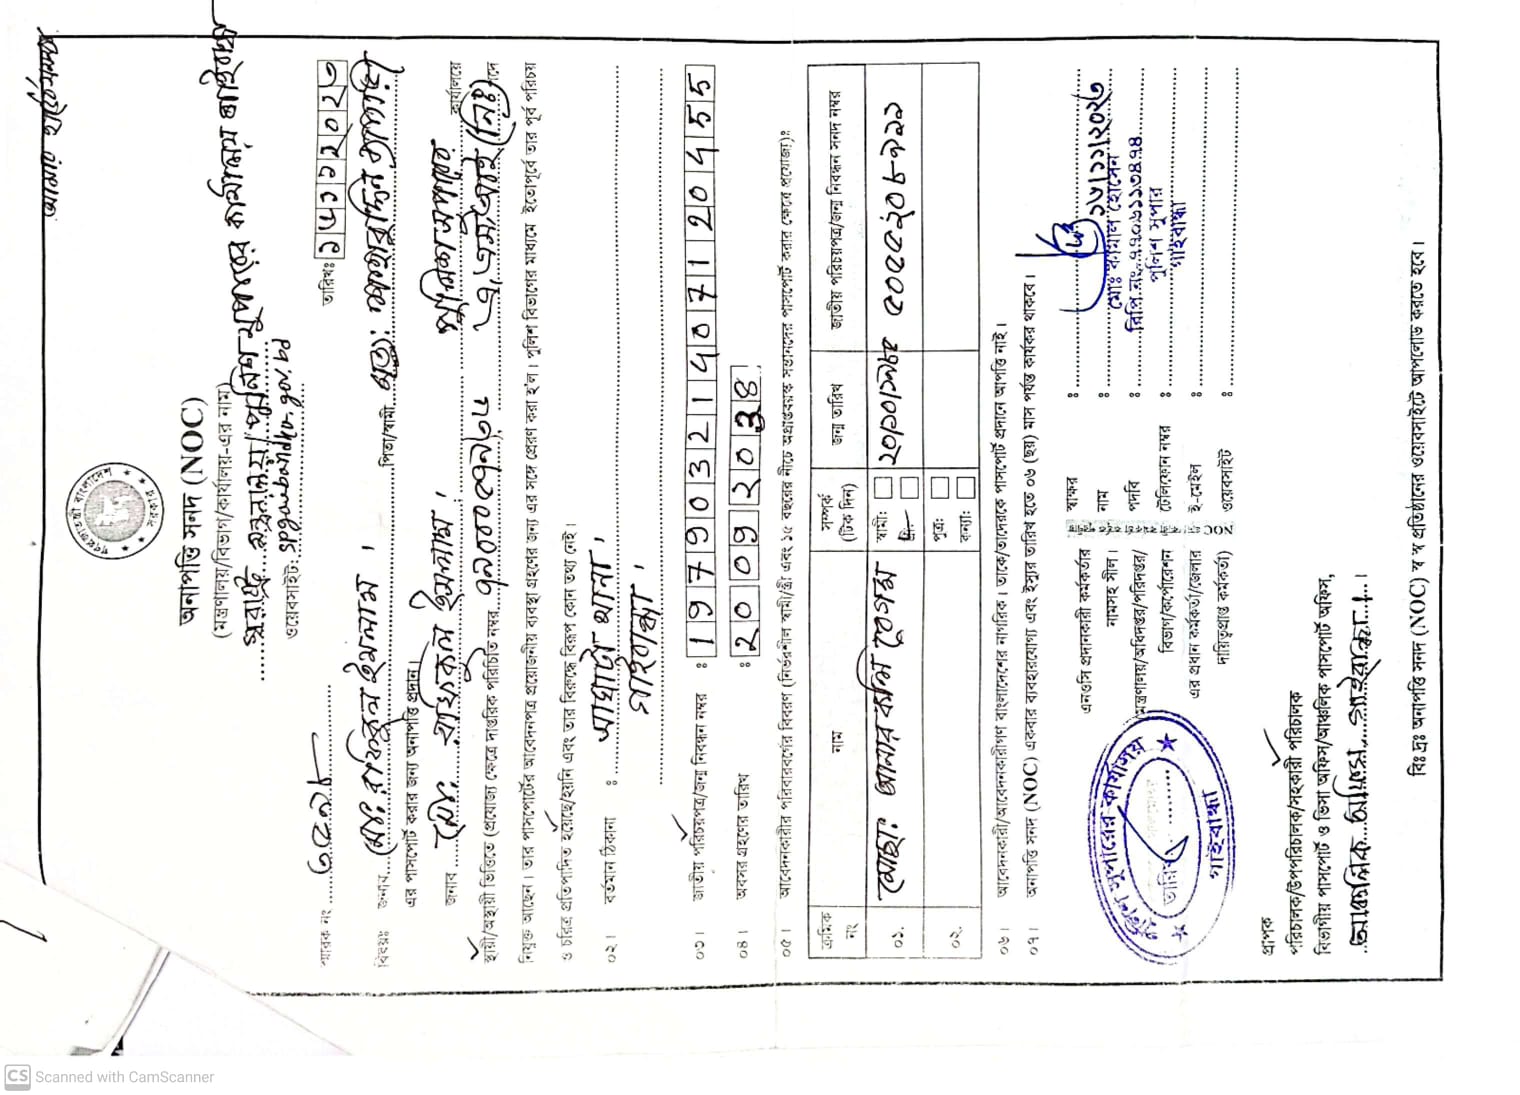 গণপ্রজাতন্ত্রী বাংলাদেশ সরকার
অনাপত্তি সনদ (NOC)
(মন্ত্রণালয়/বিভাগ/কার্যালয়-এর নাম)
স্বরাষ্ট্র মন্ত্রনালয়/পুলিশ সুপারের কার্যালয় গাইবান্ধা
ওয়েবসাইট: spgaibandha.gov.bd
স্মারক নং
তারিখঃ
বিষয়ঃ জনাব মোঃ রফিকুল ইসলাম। পিতা/স্বামী মৃত্যুঃ
এর পাসপোর্ট করার জন্য অনাপত্তি প্রদান।
জনাব মোঃ রফিকুল ইসলাম, পুলিশ সুপারের কার্যালয়ে
স্থায়ী/অস্থায়ী ভিত্তিতে (প্রযোজ্য ক্ষেত্রে দাপ্তরিক পরিচিতি নম্বর এ এস আই (নিঃ) পদে
নিযুক্ত আছেন। তার পাসপোর্টের আবেদনপত্র প্রয়োজনীয় ব্যবস্থা গ্রহণের জন্য এর সঙ্গে প্রেরণ করা হ'ল। পুলিশ বিভাগের মাধ্যমে ইতোপূর্বে তার পূর্ব পরিচয়
ও চরিত্র প্রতিপাদিত হয়েছে/হয়নি এবং তার বিরুদ্ধে বিরূপ কোন তথ্য নেই।
০২। বর্তমান ঠিকানা : সাঘাটা থানা,
গাইবান্ধা।
০৩। জাতীয় পরিচয়পত্র/জন্ম নিবন্ধন নম্বর : 19790321407120455
০৪। অবসর গ্রহণের তারিখ : 20092038
০৫। আবেদনকারীর পরিবারবর্গের বিবরণ (নির্ভরশীল স্বামী/স্ত্রী এবং ১৫ বছরের নীচে অপ্রাপ্তবয়স্ক সন্তানদের পাসপোর্ট করার ক্ষেত্রে প্রযোজ্য)ঃ
ক্রমিক নং নাম সম্পর্ক (টিক দিন) জন্ম তারিখ জাতীয় পরিচয়পত্র/জন্ম নিবন্ধন সনদ নম্বর
০১. মোছাঃ আনার কলি বেগম স্বামী: স্ত্রী:
০২. পুত্র: কন্যা:
০৬। আবেদনকারী/আবেদনকারীগণ বাংলাদেশের নাগরিক। তাকে/তাদেরকে পাসপোর্ট প্রদানে আপত্তি নাই।
০৭। অনাপত্তি সনদ (NOC) একবার ব্যবহারযোগ্য এবং ইস্যুর তারিখ হতে ০৬ (ছয়) মাস পর্যন্ত কার্যকর থাকবে।
পুলিশ সুপারের কার্যালয়
তারিখ
গাইবান্ধা
এনওসি প্রদানকারী কর্মকর্তার
নামসহ সীল।
মন্ত্রণালয়/অধিদপ্তর/পরিদপ্তর/
বিভাগ/কর্পোরেশন
এর প্রধান কর্মকর্তা/জেলার
দায়িত্বপ্রাপ্ত কর্মকর্তা)
NOC
স্বাক্ষর :
নাম : মোঃ কামাল হোসেন
পদবি : বিপি নং-৭৭০৬১১৩৪৭৪
টেলিফোন নম্বর : পুলিশ সুপার
ই-মেইল : গাইবান্ধা
ওয়েবসাইট :
প্রাপক
পরিচালক/উপপরিচালক/সহকারী পরিচালক
বিভাগীয় পাসপোর্ট ও ভিসা অফিস/আঞ্চলিক পাসপোর্ট অফিস,
আঞ্চলিক অফিস, গাইবান্ধা।
বিঃ দ্রঃ অনাপত্তি সনদ (NOC) স্ব স্ব প্রতিষ্ঠানের ওয়েবসাইটে আপলোড করতে হবে।
CS Scanned with CamScanner